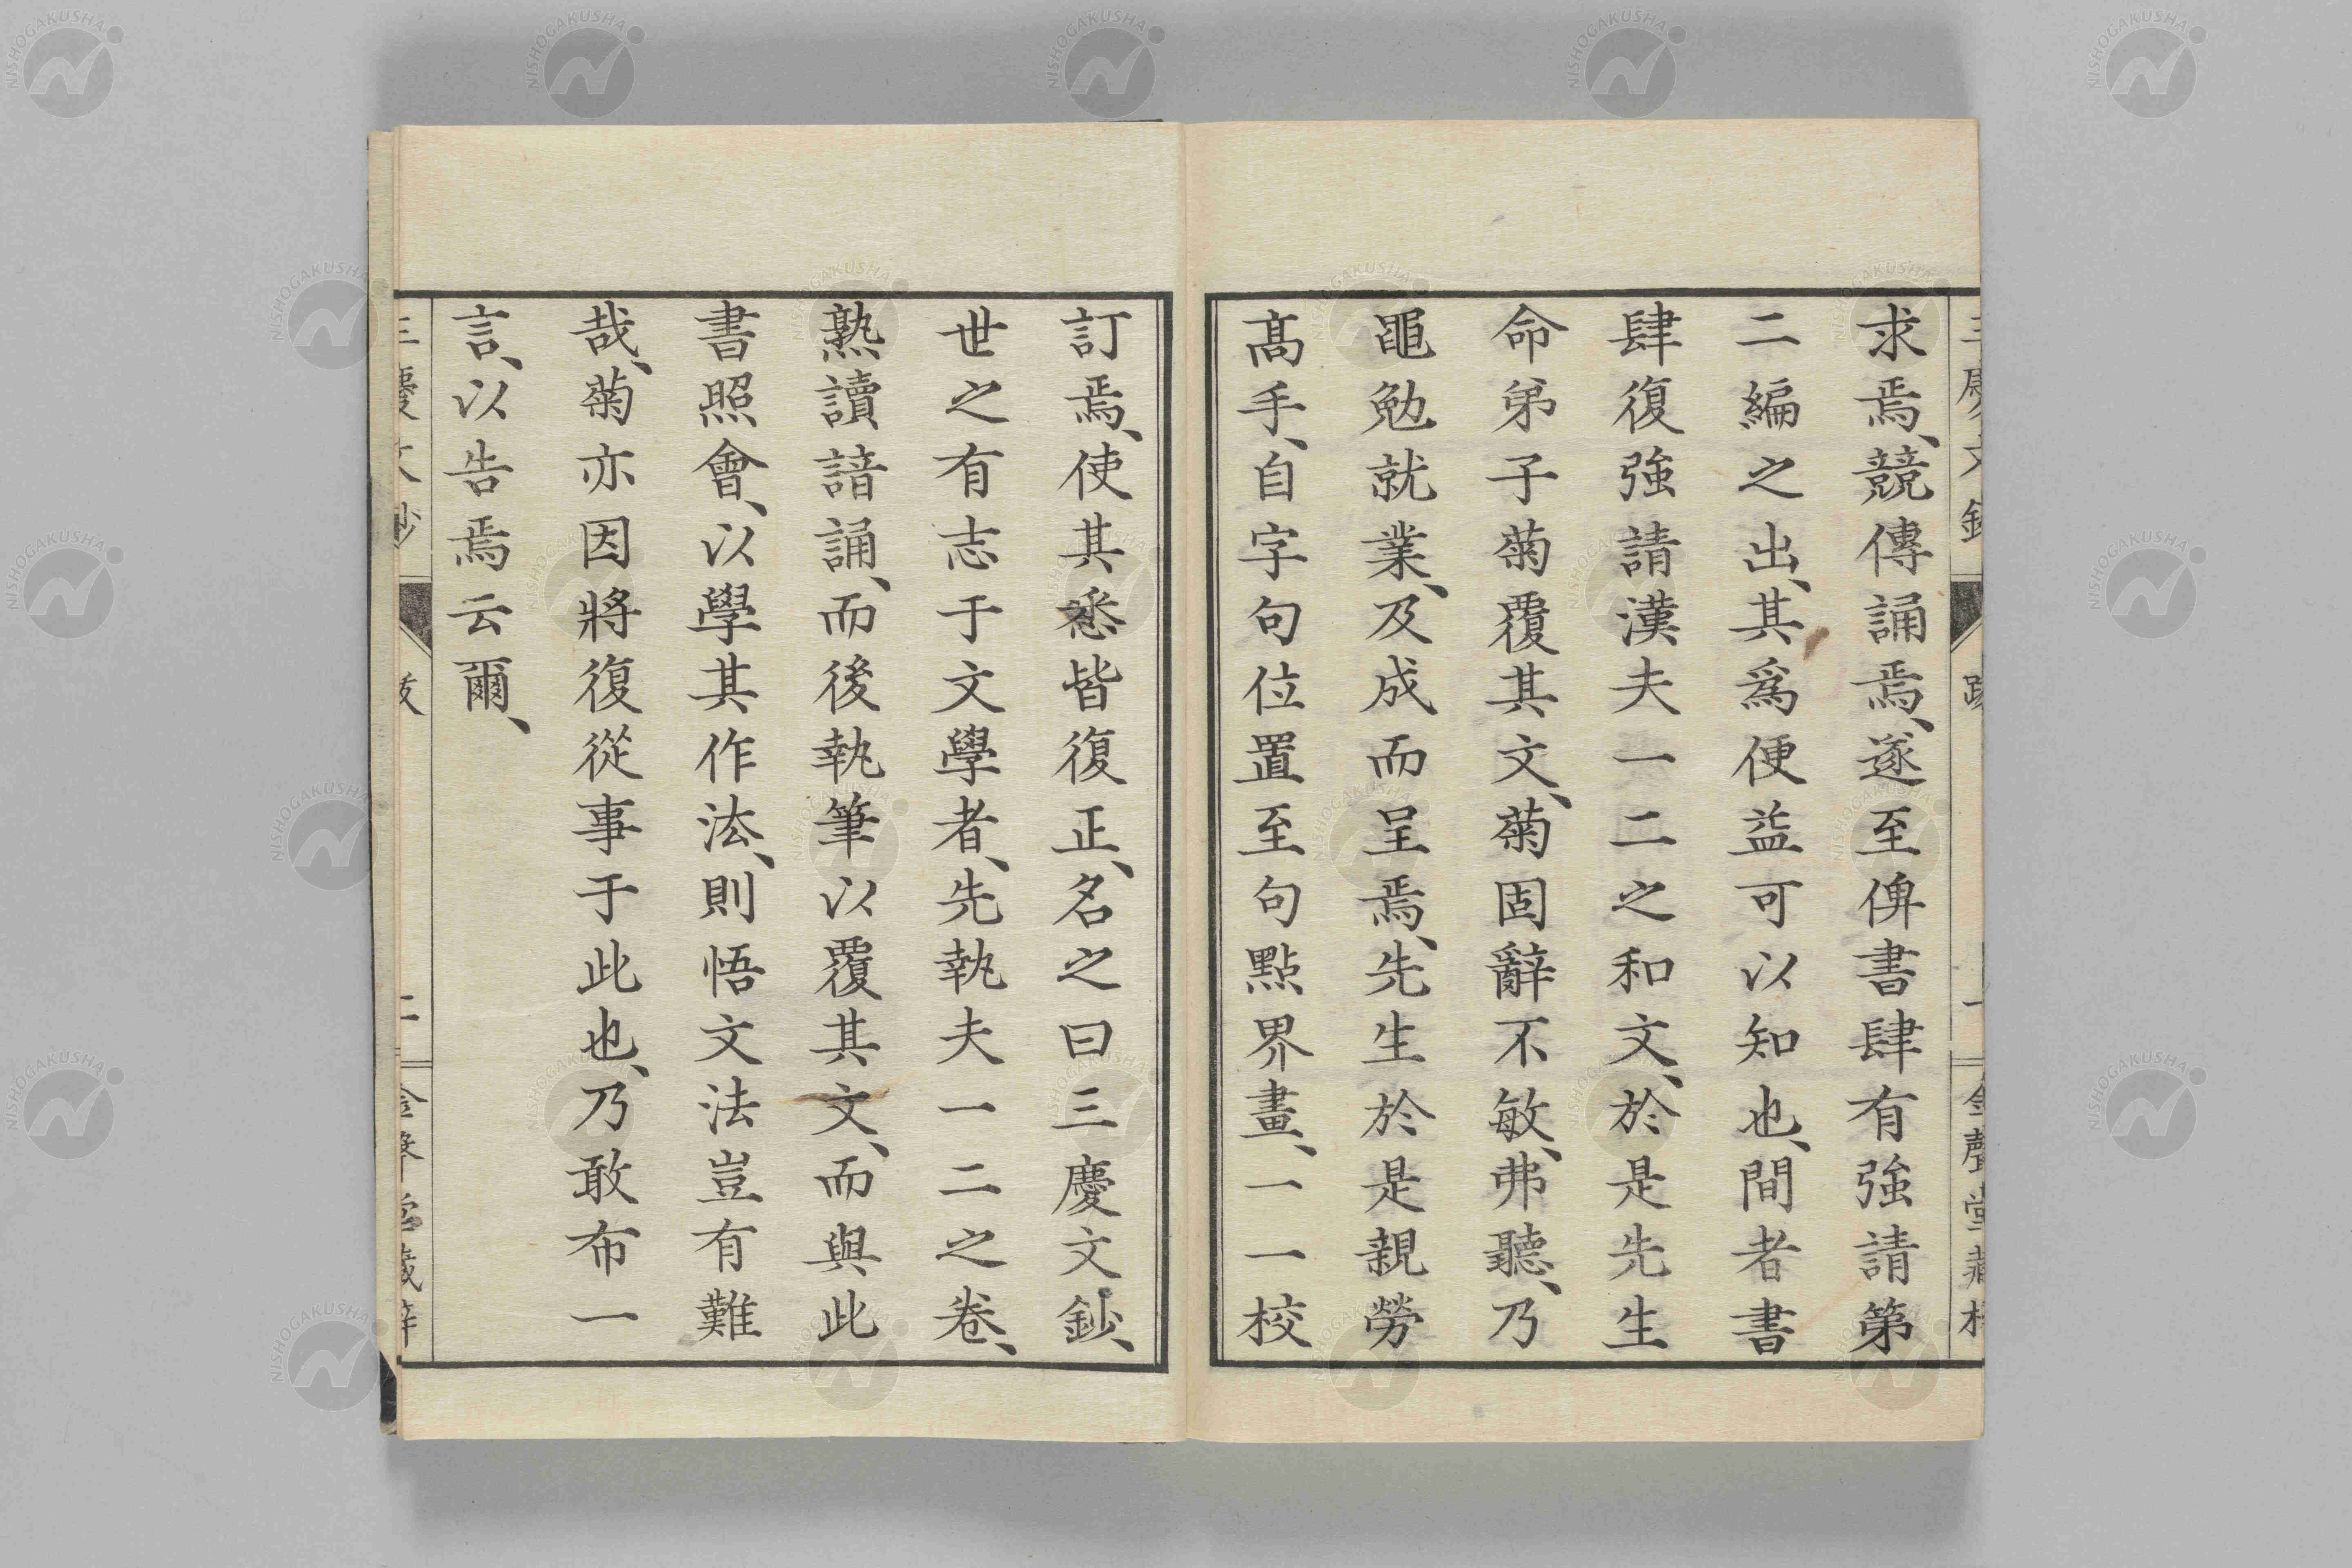 求焉、競傳誦焉、遂至俾書肆有強請第
二編之出、其爲便益可以知也、間者書
肆復強請漢夫一二之和文、於是先生
命弟子菊覆其文、菊固辭不敏、弗聽、乃
黽勉就業、及成而呈焉、先生於是親勞
髙手、自字句位置至句點界畫、一一校
訂焉、使其悉皆復正、名之曰三慶文鈔、
世之有志于文學者、先執夫一二之卷、
熟讀諳誦、而後執筆以覆其文、而與此
書照會、以學其作法、則悟文法豈有難
哉、菊亦因將復從事于此也、乃敢布一
言、以告焉云爾、
三慶文鈔
二